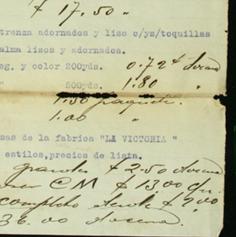 $ 17.50 "
trenza adornados y liso c/ys/toquillas
alma lisos y adornados.
ag. y color 200yds. 0.72
" 500yds. 1.80 "
1.50 paquete.
1.00 "
sas de la fabrica "LA VICTORIA "
estilos, precios de lista.
grandes $ 2.50 docena
CM $ 13.00
completo $ 9.00
36.00 docena